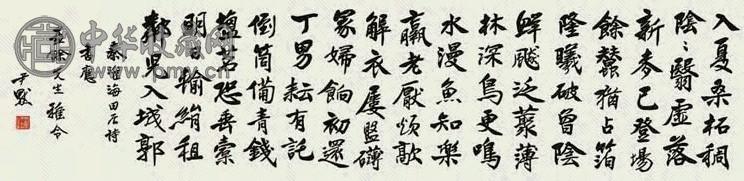 入夏桑柘稠
陰〻翳虛落
新麥已登場
餘蠶猶占箔
隆曦破曾陰
鮮飈泛藂薄
林深鳥更鳴
水漫魚知樂
羸老厭煩歊
解衣屢盤礴
冢婦餉初還
丁男耘有託
倒筒備青錢
鹽茗恐垂橐
明日輸絹租
鄰兒入城郭
秦淮海田居詩
書應
餘先生雅令
尹默
中华收藏网